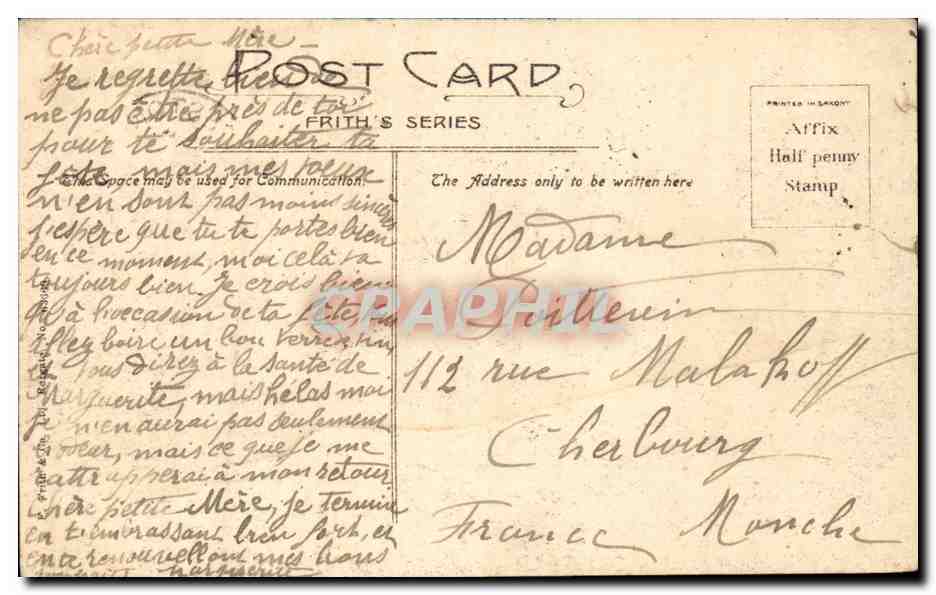 Chère petite Mère
Je regrette bien de
ne pas être près de toi
pour te souhaiter ta
fête mais mes voeux
n'en sont pas moins sincères
J'espère que tu te portes bien
en ce moment, moi celà va
toujours bien. Je crois bien
qu'à l'occasion de ta fête
allez boire un bon verre
Vous direz à la santé de
Marguerite, mais hélas moi
je n'en aurai pas seulement
mais ce que je me
rattrapperai à mon retour
Chère petite Mère, je termine
en t'embrassant bien fort, et
en te renouvellant mes bons
Marguerite
POST CARD
FRITH'S SERIES
This Space may be used for Communication.
The Address only to be written here
PRINTED IN SAXONY
Affix
Half penny
Stamp
Madame
112 rue Malakoff
Cherbourg
France Manche
CPAPHIL